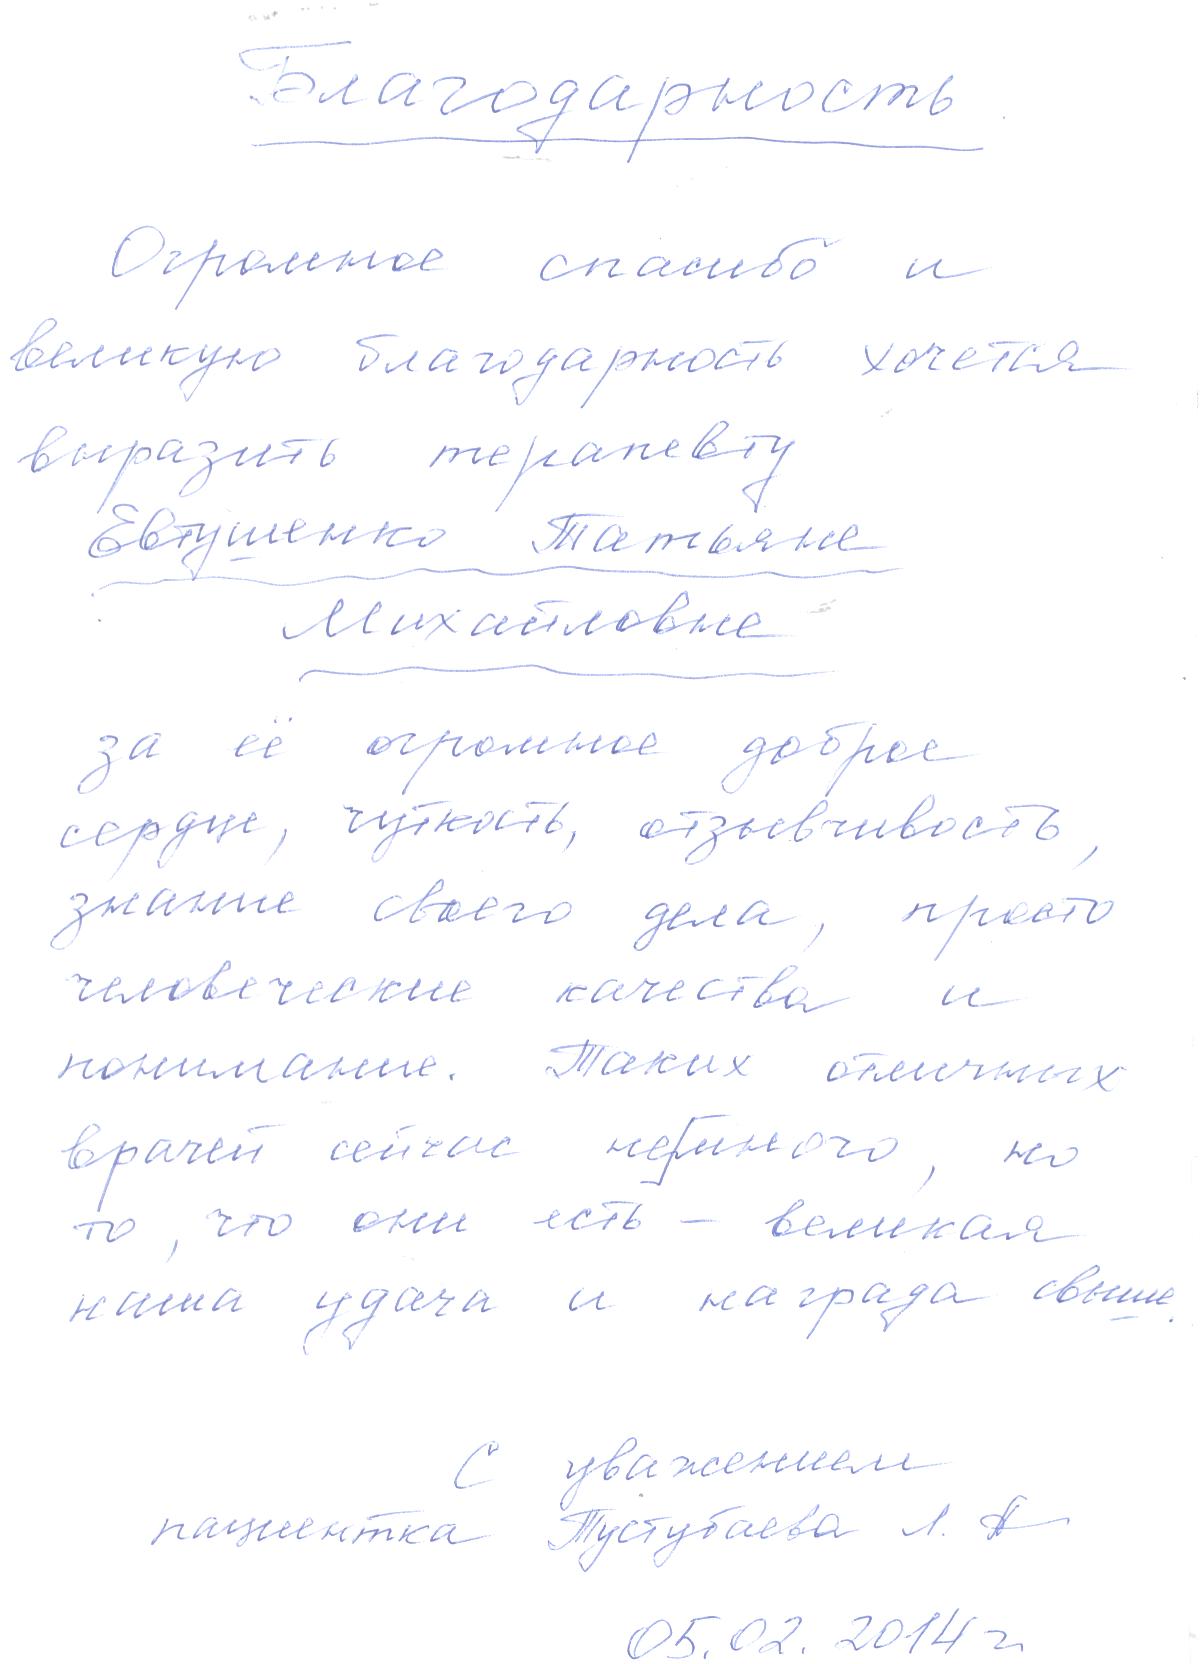 Благодарность
Огромное спасибо и
великую благодарность хочется
выразить терапевту
Евтушенко Татьяне
Михайловне
за её огромное доброе
сердце, чуткость, отзывчивость,
знание своего дела, просто
человеческие качества и
понимание. Таких отличных
врачей сейчас не много, но
то, что они есть – великая
наша удача и награда свыше.
С уважением
пациентка Пустубаева Л.
05.02.2014 г